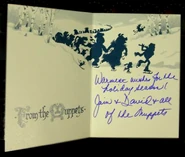 From the Muppets
Warmest wishes for the
holiday season!
Jim & David & all
of the Muppets